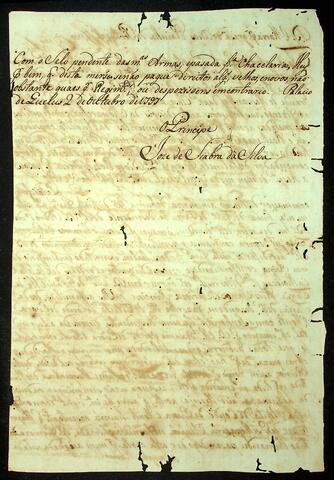 Com o Selo pendente das m.as Armas, pasada p.la Chancelaria, Hey
p bem, q desta merse senão pague direitos alg.s velhos, e novos, não
obstante quaes q Regim.tos ou despozisoens em contrario. Palacio
de Queluz 2 de Outubro de 1797
O Principe
Joze de Seabra da Silva